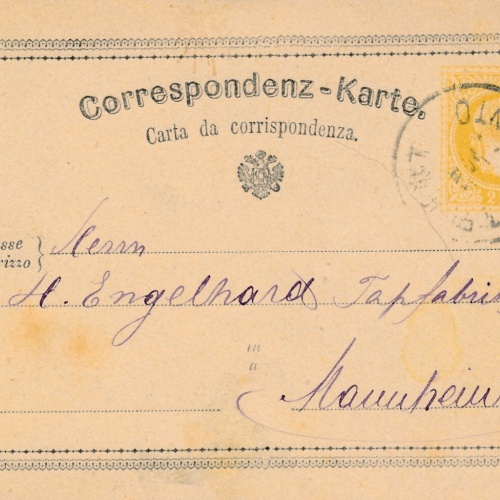 Correspondenz-Karte.
Carta da corrispondenza.
sse
rizzo
Herrn
H. Engelhard Tapfabrin
in
a
Mannheim